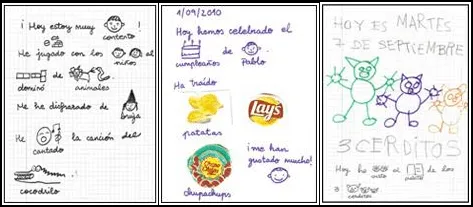 ¡ Hoy estoy muy
contento !
He jugado con los
niños al
dominó de animales.
Me he disfrazado de
bruja
He cantado la canción del
cocodrilo
1/09/2010
Hoy hemos celebrado el
cumpleaños de Pablo
Ha traído
patatas
Lay's
Chupa Chups
chupachups
¡me han
gustado mucho!
HOY ES MARTES
7 DE SEPTIEMBRE
3 CERDITOS
Hoy he visto el cuento de los
3 cerditos